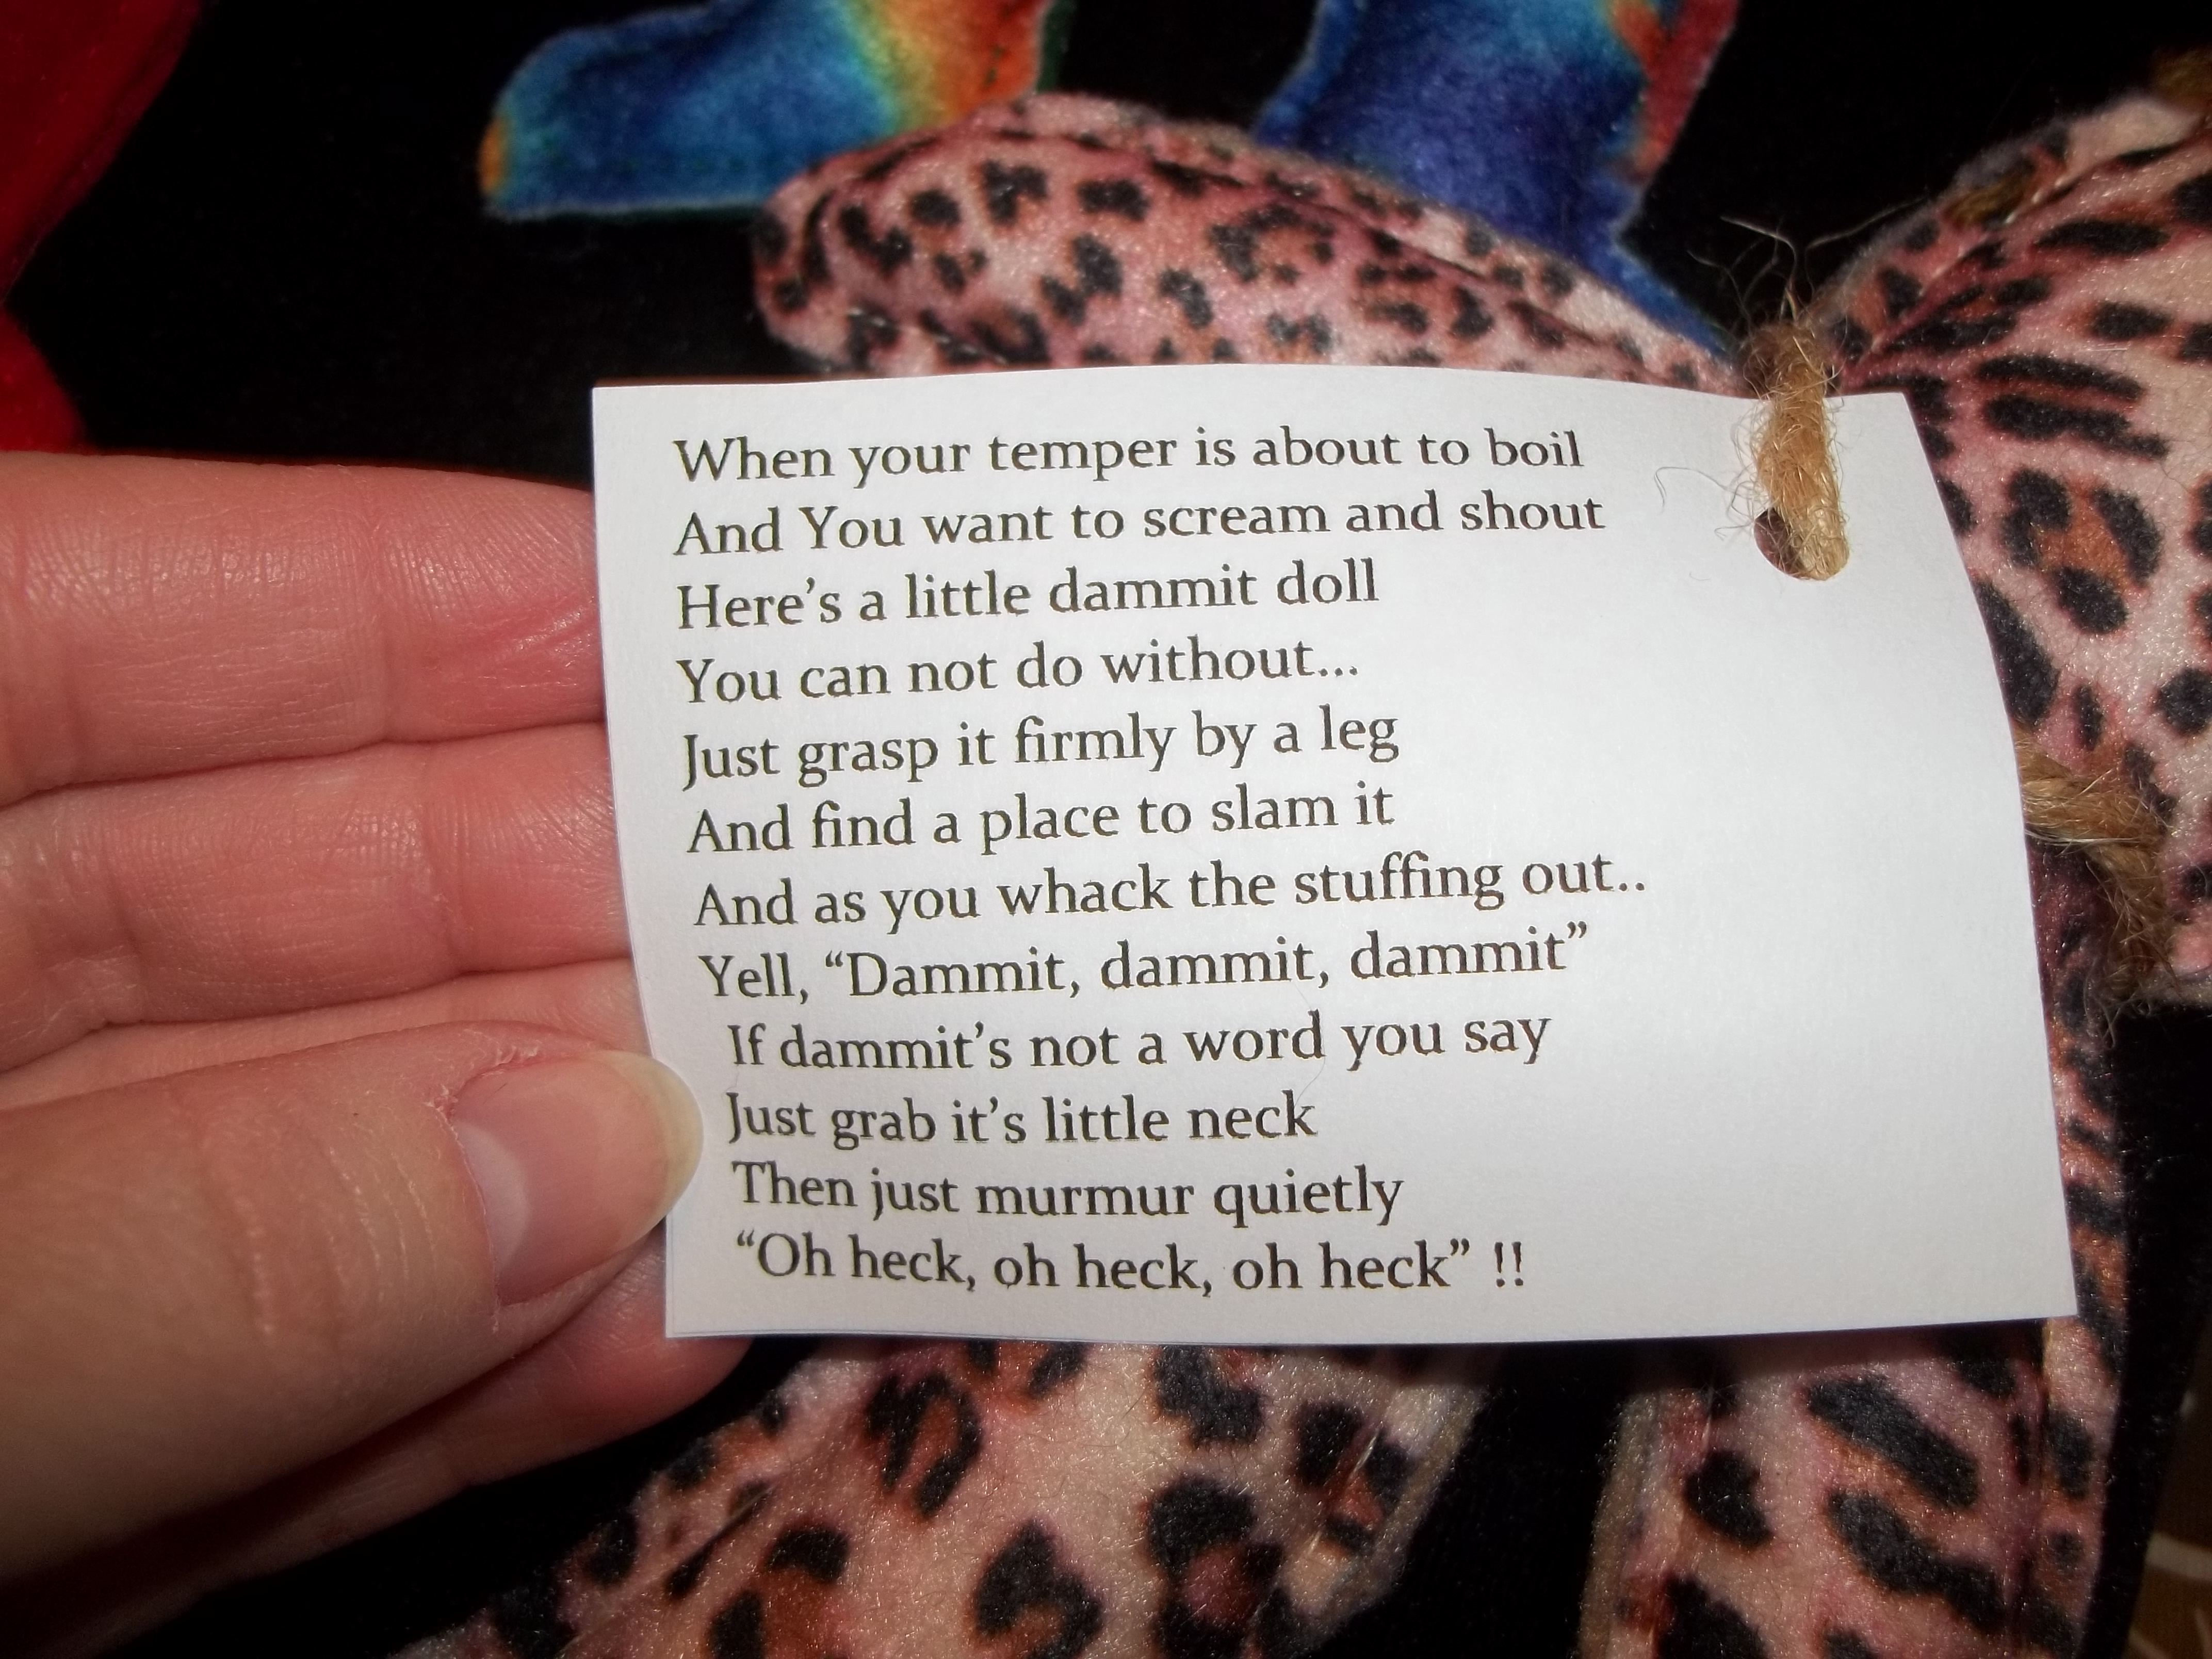 When your temper is about to boil
And You want to scream and shout
Here’s a little dammit doll
You can not do without...
Just grasp it firmly by a leg
And find a place to slam it
And as you whack the stuffing out..
Yell, “Dammit, dammit, dammit”
If dammit’s not a word you say
Just grab it’s little neck
Then just murmur quietly
“Oh heck, oh heck, oh heck” !!